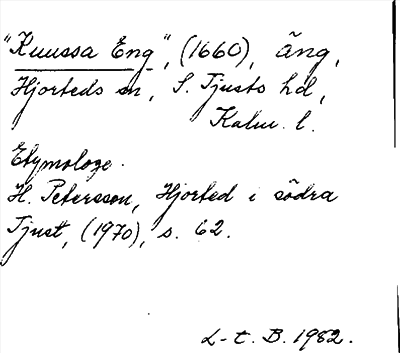 "Kuussa Eng", (1660), äng,
Hjorteds sn, S. Tjusts hd,
Kalm. l.
Etymologe.
H. Petersson, Hjorted i södra
Tjust, (1970), s. 62.
L-t. B. 1982.